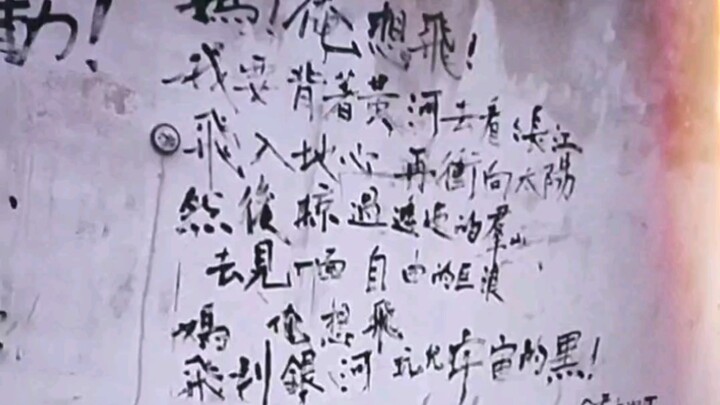 動！
媽！俺想飛！
我要背着黃河去看長江
飛入地心 再衝向太陽
然後掠過遠边的羣山
去見一面 自由的巨浪
媽 俺想飛
飛到銀河 玩允宇宙的黑！